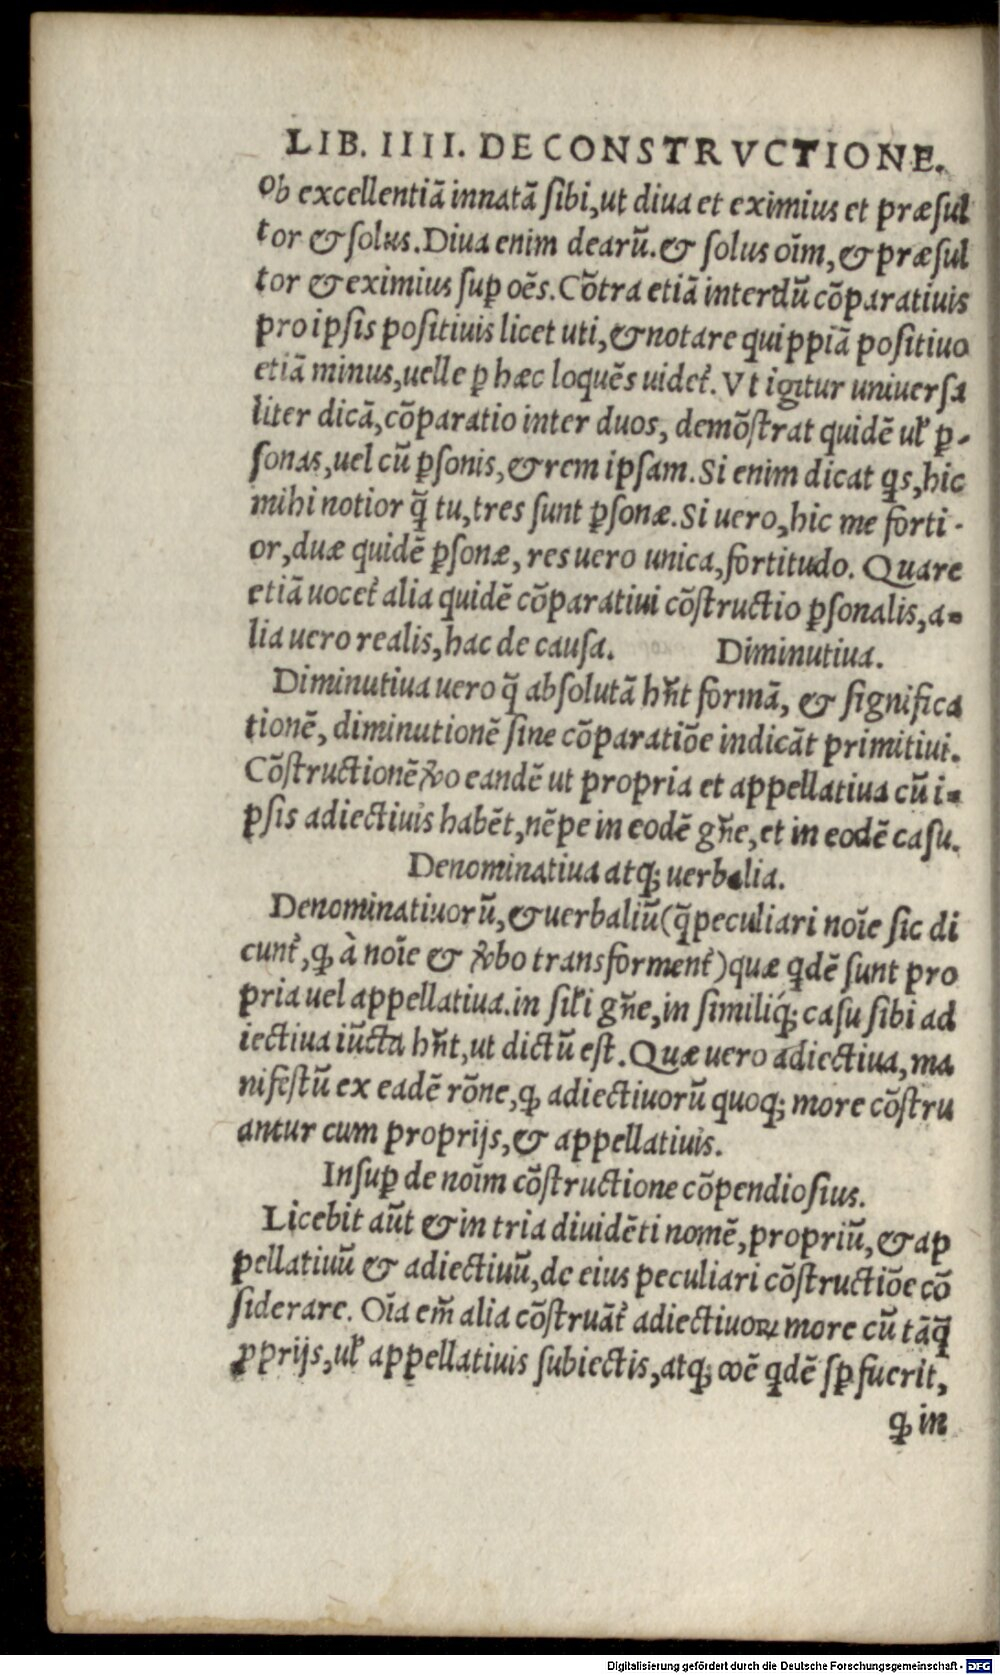 LIB. IIII. DE CONSTRVCTIONE.
Ob excellentiā innatā sibi, ut diua et eximius et præsul
tor & solus. Diua enim dearū. & solus oīm, & præsul
tor & eximius suꝑ oēs. Cōtra etiā interdū cōparatiuis
pro ipsis positiuis licet uti, & notare quippiā positiuo
etiā minus, uelle ꝑ hæc loquēs uidet᷑. Vt igitur uniuersa
liter dicā, cōparatio inter duos, demōstrat quidē ul̓ ꝑ-
sonas, uel cū ꝑsonis, & rem ipsam. Si enim dicat ꝗs, hic
mihi notior q̄̃ tu, tres sunt ꝑsonæ. Si uero, hic me forti-
or, duæ quidē ꝑsonæ, res uero unica, fortitudo. Quare
etiā uocet᷑ alia quidē cōparatiui cōstructio ꝑsonalis, a-
lia uero realis, hac de causa. Diminutiua.
Diminutiua uero q̄ absolutā hn̄t formā, & significa
tionē, diminutionē sine cōparatiōe indicāt primitiui.
Cōstructionē ꝟo eandē ut propria et appellatiua cū i-
psis adiectiuis habēt, nēpe in eodē gn̄e, et in eodē casu.
Denominatiua atq; uerbalia.
Denominatiuorū, & uerbaliū (q̄ peculiari noīe sic di
cunt᷑, ꝙ à noīe & ꝟbo transforment᷑) quæ ꝗdē sunt pro
pria uel appellatiua. in sil̓i gn̄e, in similiq́; casu sibi ad
iectiua iūcta hn̄t, ut dictū est. Quæ uero adiectiua, ma
nifestū ex eadē rōne, ꝙ adiectiuorū quoq; more cōstru
antur cum proprijs, & appellatiuis.
Insuꝑ de noīm cōstructione cōpendiosius.
Licebit aūt & in tria diuidēti nomē, propriū, & ap
pellatiuū & adiectiuū, de eius peculiari cōstructiōe cō
siderare. Oīa em̄ alia cōstruāt᷑ adiectiuoꝝ more cū tāq̄̃
ꝓprijs, ul̓ appellatiuis subiectis, atq; oē ꝗdē sꝑ fuerit,
ꝙ in
Digitalisierung gefördert durch die Deutsche Forschungsgemeinschaft - DFG